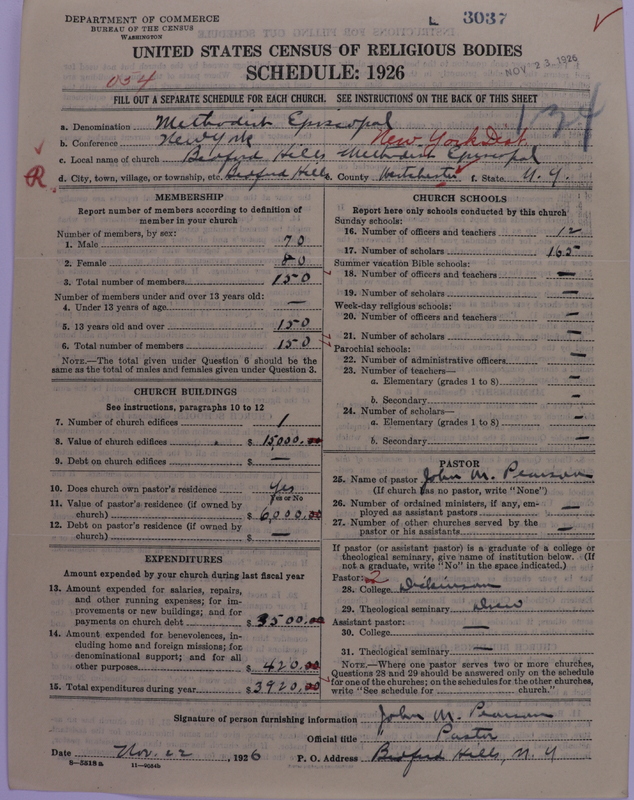 DEPARTMENT OF COMMERCE
BUREAU OF THE CENSUS
WASHINGTON
L 3037
UNITED STATES CENSUS OF RELIGIOUS BODIES
SCHEDULE: 1926
NOV 23 1926
034
134
FILL OUT A SEPARATE SCHEDULE FOR EACH CHURCH. SEE INSTRUCTIONS ON THE BACK OF THIS SHEET
a. Denomination Methodist Episcopal
b. Conference New York New York Dist.
c. Local name of church Bedford Hills Methodist Episcopal
R. d. City, town, village, or township, etc. Bedford Hills e. County Westchester f. State N. Y.
MEMBERSHIP
Report number of members according to definition of
member in your church
Number of members, by sex:
1. Male 70
2. Female 80
3. Total number of members 150
Number of members under and over 13 years old:
4. Under 13 years of age —
5. 13 years old and over 150
6. Total number of members 150
NOTE.—The total given under Question 6 should be
same as the total of males and females given under Question 3.
CHURCH BUILDINGS
See instructions, paragraphs 10 to 12
7. Number of church edifices 1
8. Value of church edifices $ 15,000.00
9. Debt on church edifices $ —
10. Does church own pastor's residence Yes
Yes or No
11. Value of pastor's residence (if owned by
church) $ 6,000.00
12. Debt on pastor's residence (if owned by
church) $ —
EXPENDITURES
Amount expended by your church during last fiscal year
13. Amount expended for salaries, repairs,
and other running expenses; for im-
provements or new buildings; and for
payments on church debt $ 3500.00
14. Amount expended for benevolences, in-
cluding home and foreign missions; for
denominational support; and for all
other purposes $ 420.00
15. Total expenditures during year $ 3920.00
CHURCH SCHOOLS
Report here only schools conducted by this church
Sunday schools:
16. Number of officers and teachers 12
17. Number of scholars 165
Summer vacation Bible schools:
18. Number of officers and teachers —
19. Number of scholars —
Week-day religious schools:
20. Number of officers and teachers —
21. Number of scholars —
Parochial schools:
22. Number of administrative officers —
23. Number of teachers—
a. Elementary (grades 1 to 8) —
b. Secondary —
24. Number of scholars—
a. Elementary (grades 1 to 8) —
b. Secondary —
PASTOR
25. Name of pastor John M. Pearson
(If church has no pastor, write "None")
26. Number of ordained ministers, if any, em-
ployed as assistant pastors —
27. Number of other churches served by the
pastor or his assistants —
If pastor (or assistant pastor) is a graduate of a college or
theological seminary, give name of institution below. (If
not a graduate, write "No" in the space indicated.)
Pastor: 2
28. College Dickinson
29. Theological seminary Drew
Assistant pastor:
30. College —
31. Theological seminary —
NOTE.—Where one pastor serves two or more churches,
Questions 28 and 29 should be answered only on the schedule
for one of the churches; on the schedules for the other churches,
write "See schedule for church."
Signature of person furnishing information John M. Pearson
Official title " Pastor
Date Nov. 22, 1926 P. O. Address Bedford Hills, N. Y.
8—5518a 11—9564b